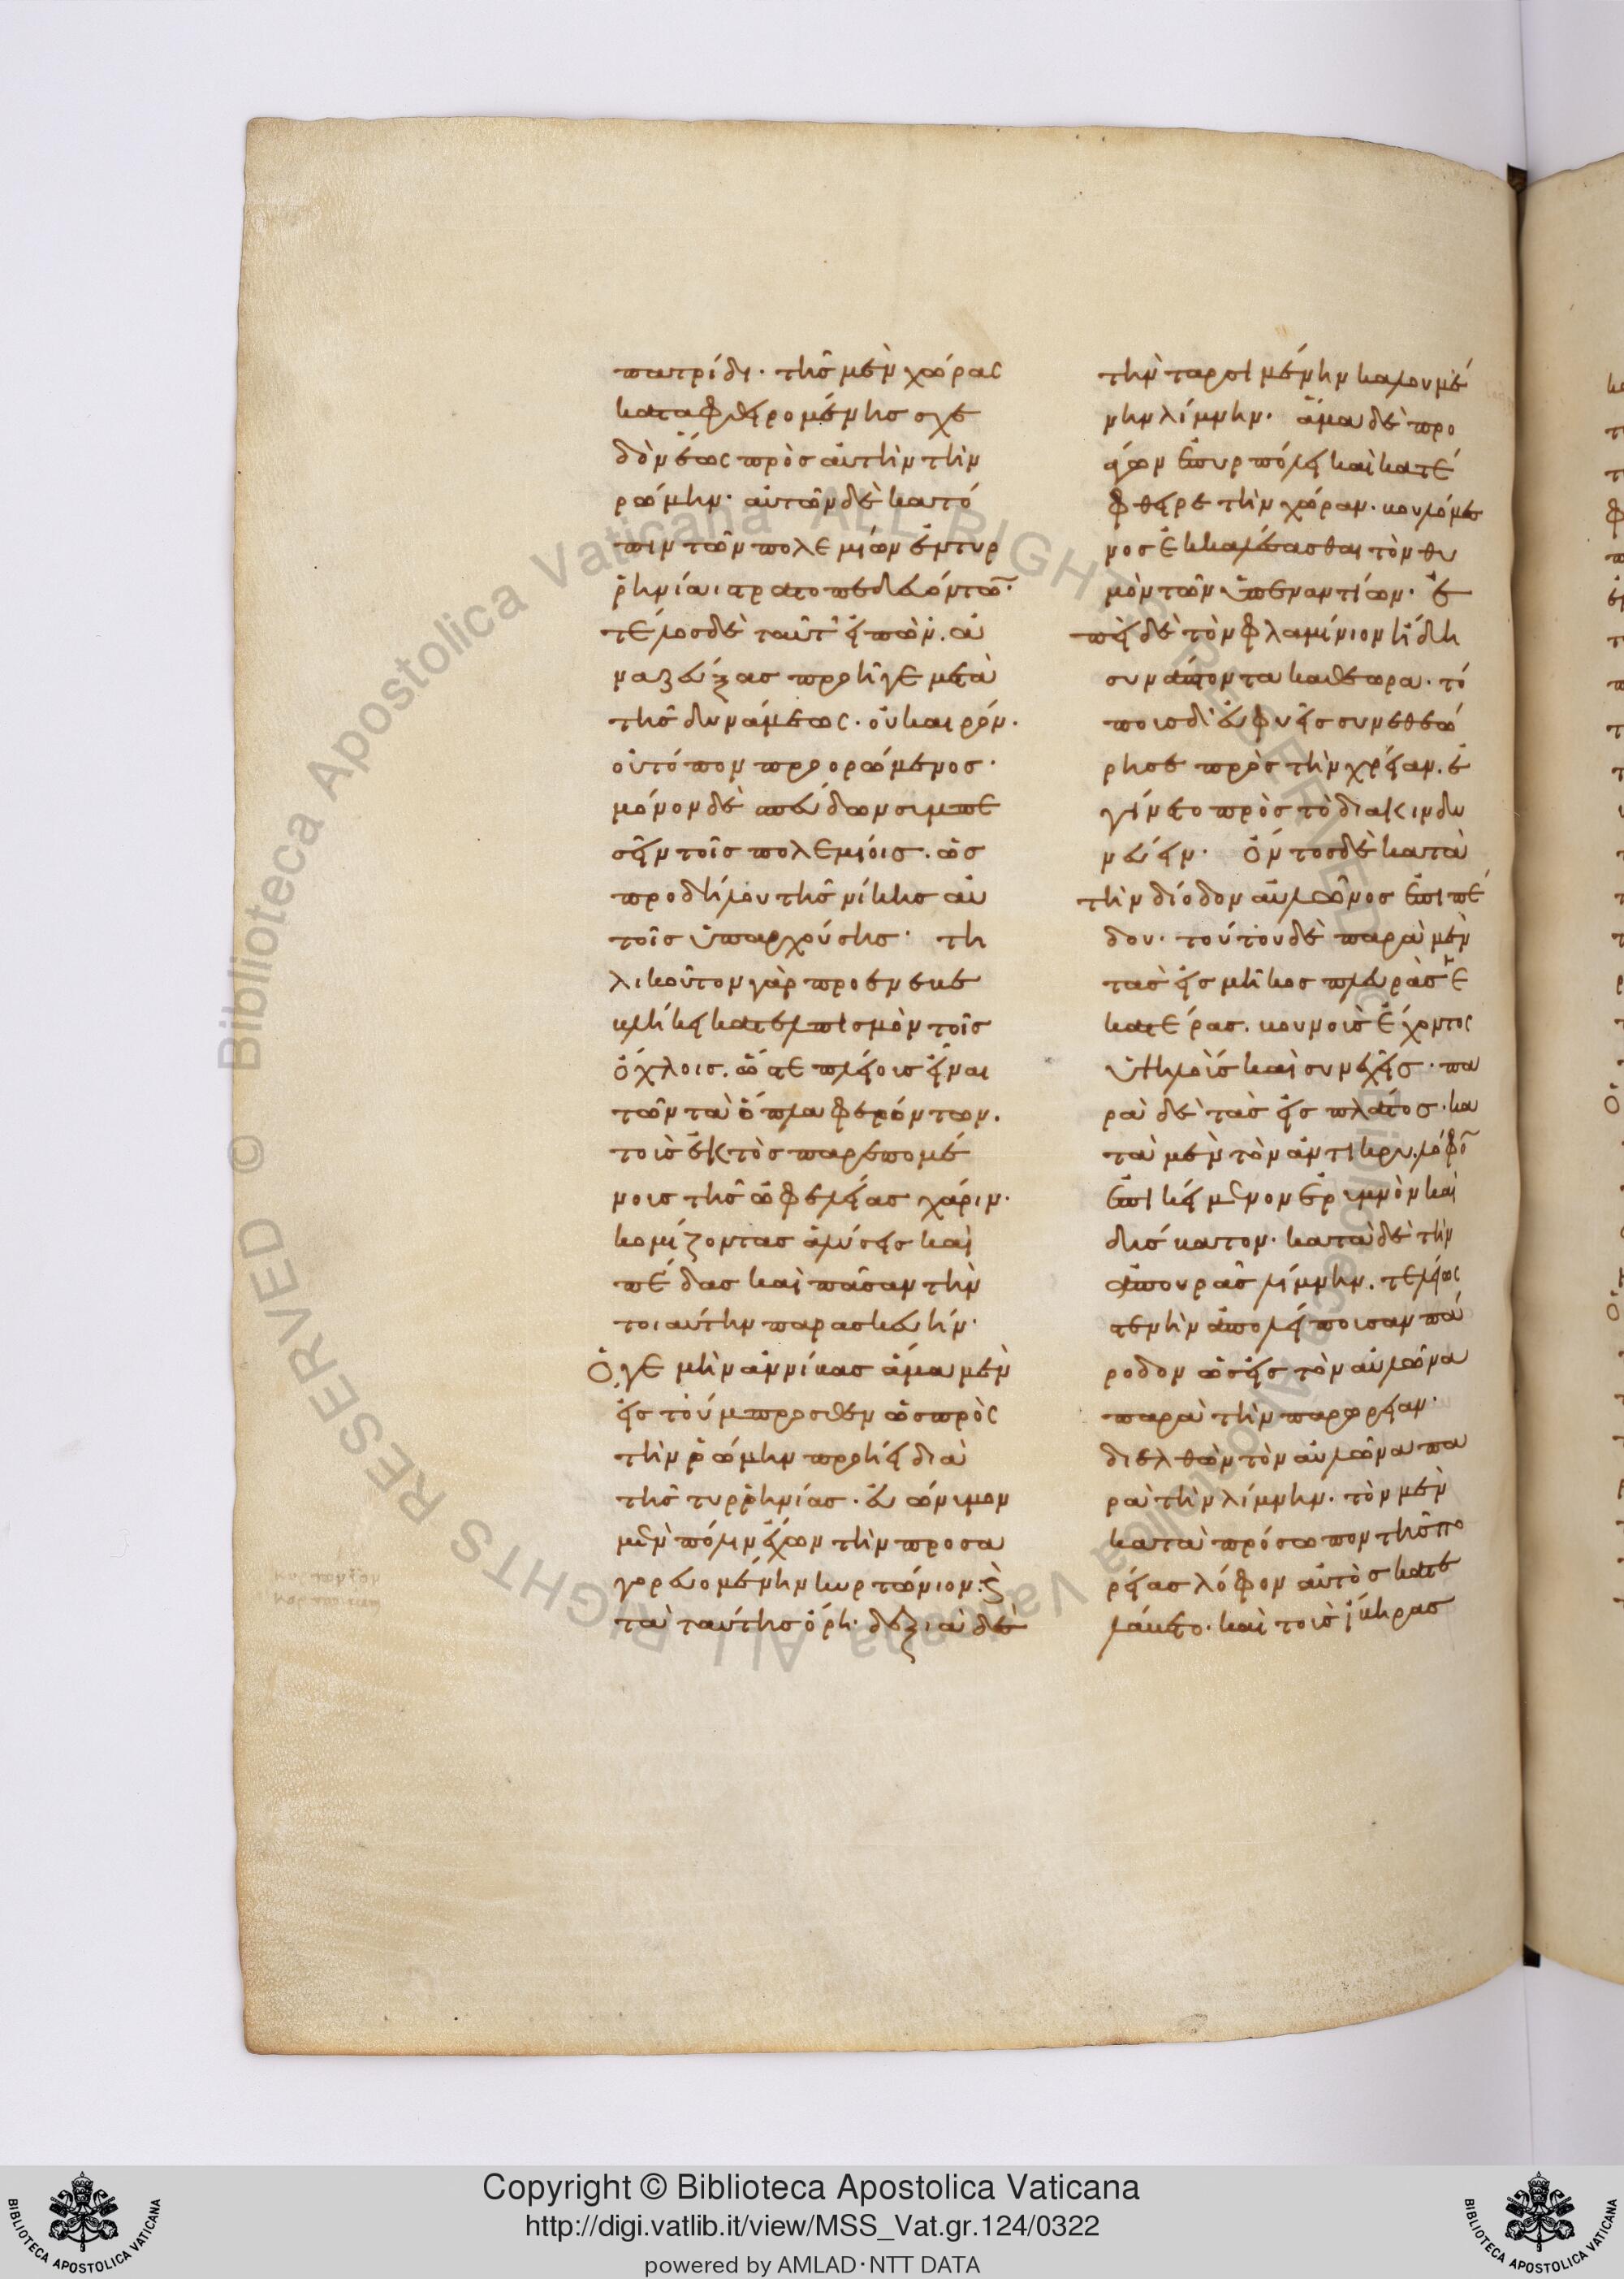 πατρίδι· τῆς μὲν χώρας
καταφθειρομένης σχε
δὸν ἕως πρὸς αὐτὴν τὴν
ῥώμην· αὐτῶν δὲ κατό
πιν τῶν πολεμίων ἐν τυρ
ῥηνίαι στρατοπεδευόντω̅·
τέλος δὲ ταῦτ' εἰπὼν. ἀ
ναζεύξας προῆγε μετὰ
τῆς δυνάμεως· οὐ καιρόν·
οὐ τόπον προορώμενος·
μόνον δὲ σπεύδων συμπε
σεῖν τοῖς πολεμίοις. ὡς
προδήλου τῆς νίκης αὐ
τοῖς ὑπαρχούσης· τη
λικοῦτον γὰρ προενεκε
κλήκει κατελπισμὸν τοῖς
ὄχλοις. ὥστε πλείοις εἶναι
τῶν τὰ ὅπλα φερόντων.
τοῖς ἐκτὸς παρεπομέ
νοις τῆς ὠφελείας χάριν·
κομίζοντας ἁλύσεις καὶ
πέδας καὶ πᾶσαν τὴν
τοιαύτην παρασκευήν·
Ὅ γε μὴν ἀννίβας ἅμα μὲν
εἰς τοὔμπροσθεν ὡς πρὸς
τὴν ῥώμην προήει διὰ
τῆς τυρρηνίας· εὐώνυμον
μὲν πόλιν ἔχων τὴν προσα
γορευομένην κυρτώνιον· ϗ
τὰ ταύτης ὄρη· δεξιὰ δὲ
τὴν ταρσιμένην καλουμέ
νην λίμνην· ἅμα δὲ προ
άγων ἐπυρπόλει καὶ κατέ
φθειρε τὴν χώραν· βουλόμε
νος ἐκκαλέσασθαι τὸν θυ
μὸν τῶν ὑπεναντίων· ἐ
πεὶ δὲ τὸν φλαμίνιον ἤδη
συνάπτοντα καθεώρα· τό
ποις δ' εὐφυεῖς συνεθεώ
ρησε πρὸς τὴν χρείαν. ἐ
γίνετο πρὸς τὸ διακινδυ
νεύειν· ὄντος δὲ κατὰ
τὴν δίοδον αὐλῶνος ἐπιπέ
δου· τούτου δὲ παρὰ μὲν
τὰς εἰς μῆκος πλευρὰς ἑ
κατέρας. βουνοὺς ἔχοντος
ὑψηλοὺς καὶ συνεχεῖς· πα
ρὰ δὲ τὰς εἰς πλάτος· κα
τὰ μὲν τὸν ἀντικρυ. λόφο̅
ἐπικείμενον ἐρυμνὸν καὶ
δύσβατον· κατὰ δὲ τὴν
ἀπ' οὐρᾶς λίμνην. τελείως
στενὴν ἀπολείποισαν πά
ροδον ὡς εἰς τὸν αὐλῶνα
παρὰ τὴν παρωρείαν·
διελθὼν τὸν αὐλῶνα πα
ρὰ τὴν λίμνην. τὸν μὲν
κατὰ πρόσωπον τῆς πο
ρείας λόφον αὐτὸς κατε
λάβετο· καὶ τοὺς ἴβηρας
Copyright © Biblioteca Apostolica Vaticana
http://digi.vatlib.it/view/MSS_Vat.gr.124/0322
powered by AMLAD·NTT DATA